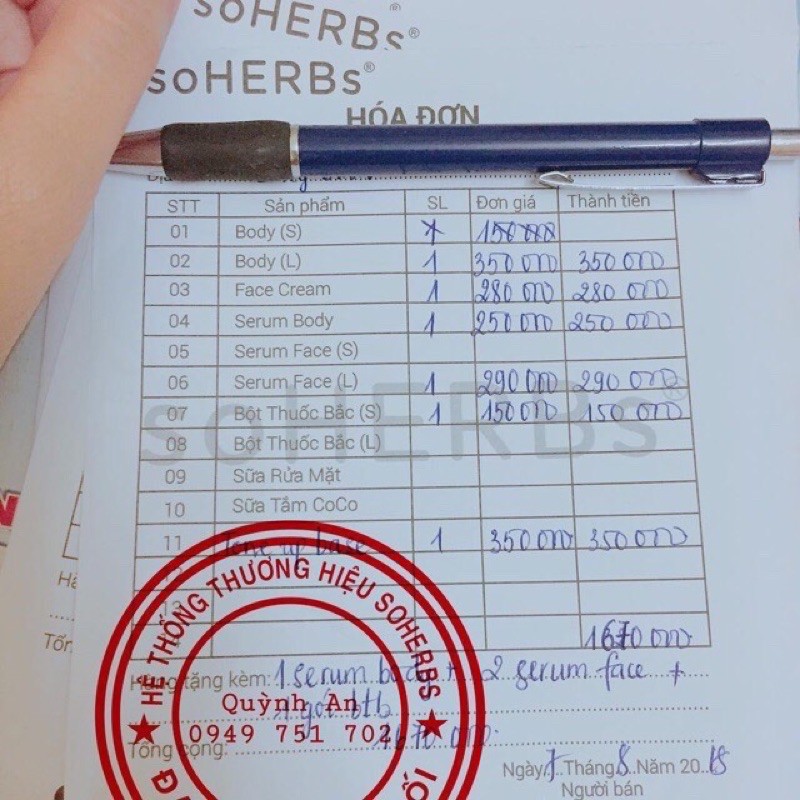 soHERBs®
soHERBs®
HÓA ĐƠN
STT Sản phẩm SL Đơn giá Thành tiền
01 Body (S) 1 150 000
02 Body (L) 1 350 000 350 000
03 Face Cream 1 280 000 280 000
04 Serum Body 1 250 000 250 000
05 Serum Face (S)
06 Serum Face (L) 1 290 000 290 000
07 Bột Thuốc Bắc (S) 1 150 000 150 000
08 Bột Thuốc Bắc (L)
soHERBs®
09 Sữa Rửa Mặt
10 Sữa Tắm CoCo
11 Tone up base 1 350 000 350 000
1670 000
HỆ THỐNG THƯƠNG HIỆU SOHERBS
Hàng tặng kèm: 1 serum body + 2 serum face +
1 gói btb
Quỳnh An
0949 751 702
Tổng cộng: 1670 000
Ngày 7 Tháng 8 Năm 2018
Người bán